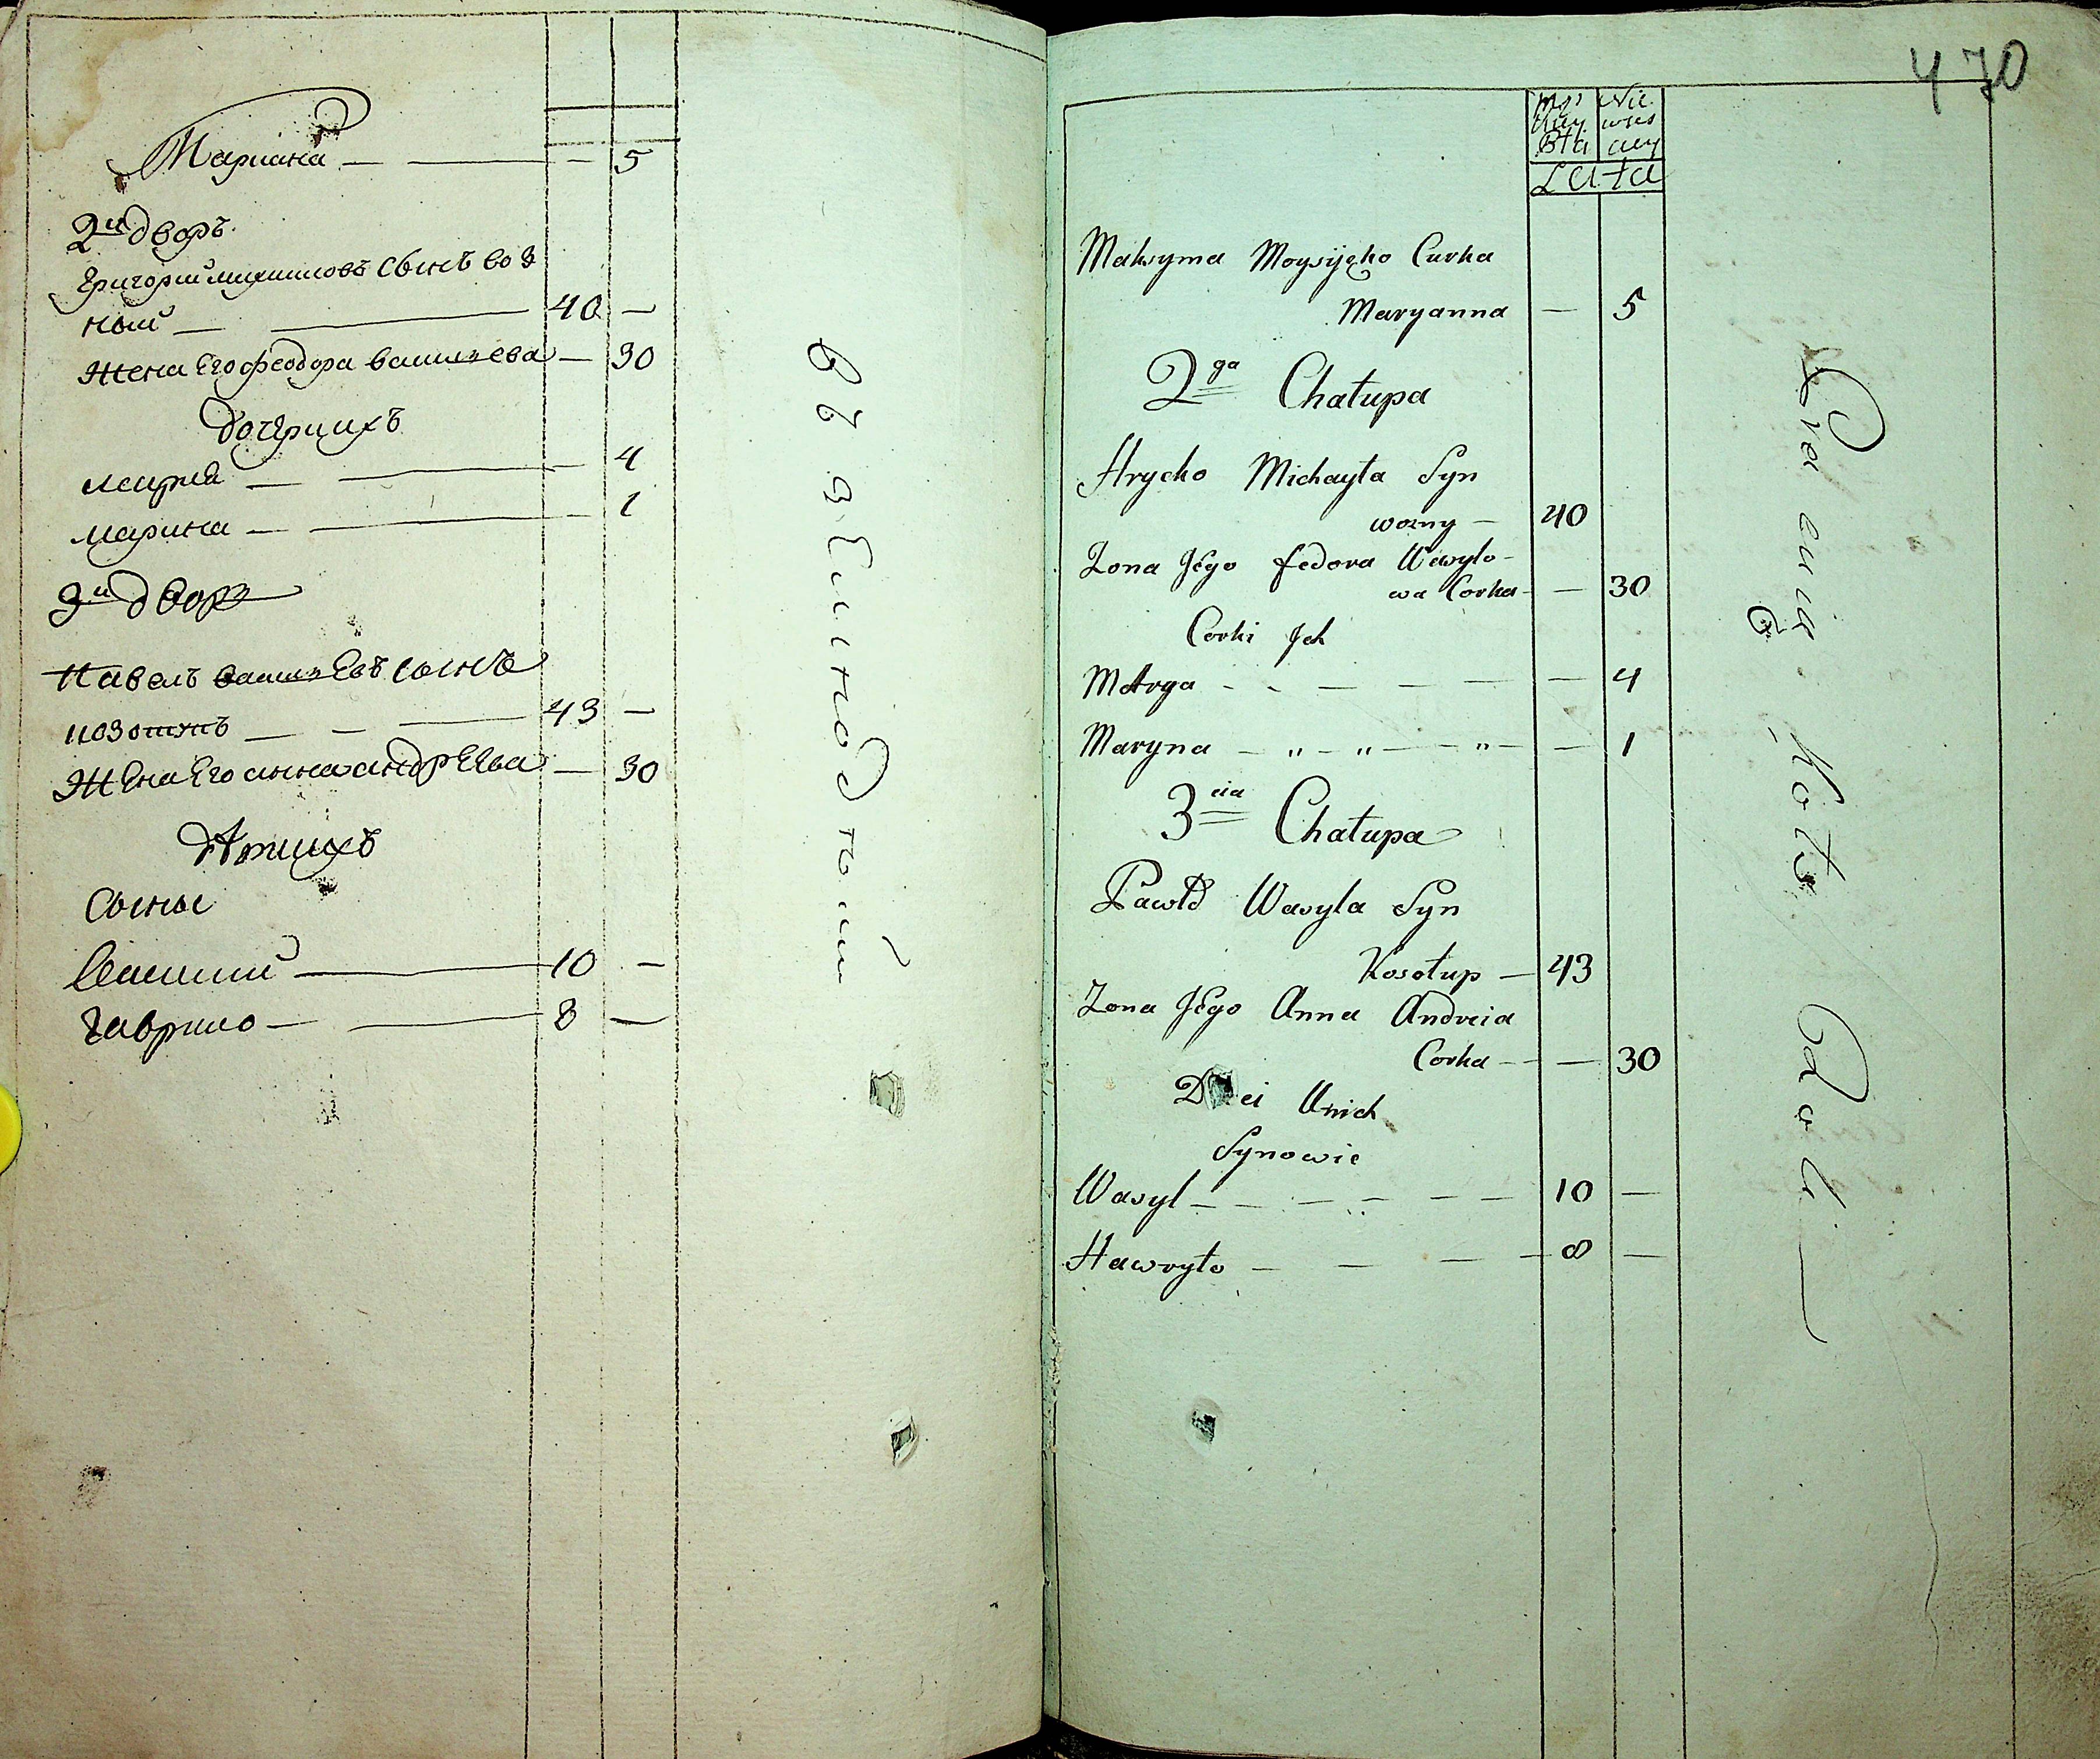 Мариана — — — 5
2й дворъ
Григории михаиловъ сынъ воз
ный — — 40 —
жена Его феодора васильева — 30
дочери ихъ
матрiа — — — 4
марина — — 1
3й дворъ
Павелъ васильЕвъ сынъ
козотупъ — — — 43 —
жЕна Его анна андрЕЕва — 30
дѣти ихъ
Сыны
Василий — 10 —
гаврило — — 8 —
470
Lata
Maksyma Moysijcho Curka
Maryanna — 5
2ga Chałupa
Hrycko Michayła Syn
wozny — 40
Zona JEgo fedora Wasylo-
wa Corka - — 30
Corki Jch
Motrya - - — — — — 4
Maryna — „ — „ — — „ — — 1
3cia Chałupa
Pawło Wasyla Syn
Kosotup — 43
Zona JEgo Anna Andreia
Corka - — 30
Dzieci Unich
Synowie
Wasyl — — — — — — 10 —
Hawryło — — — — 8 —